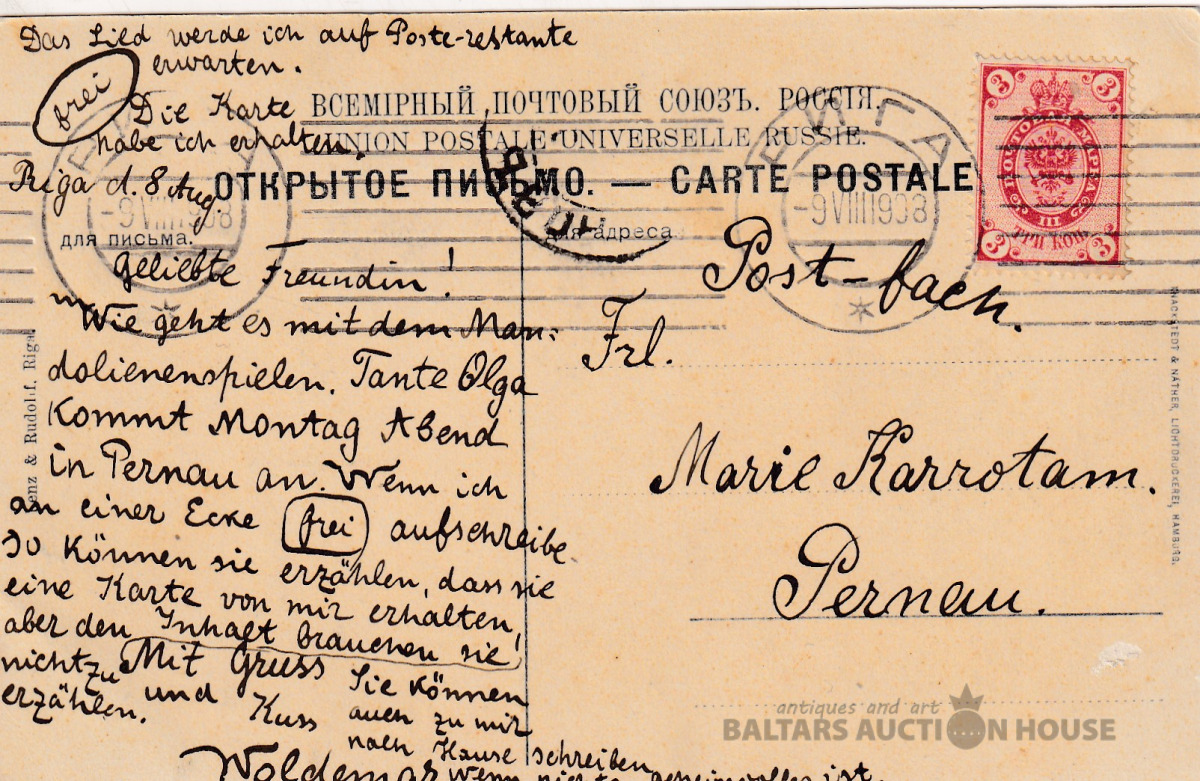 Das Lied werde ich auf Poste-restante
erwarten.
frei
Die Karte
habe ich erhalten.
Riga d. 8 Aug.
ВСЕМІРНЫЙ ПОЧТОВЫЙ СОЮЗЪ. РОССІЯ.
UNION POSTALE UNIVERSELLE RUSSIE.
ОТКРЫТОЕ ПИСЬМО. — CARTE POSTALE
для письма.
для адреса
РИГА
-9 VIII 1908
РИГА
-9 VIII 1908
3 3
ПОЧТОВАЯ МАРКА
III
ТРИ КОП.
3 3
Geliebte Freundin!
Wie geht es mit dem Man:
dolienenspielen. Tante Olga
kommt Montag Abend
in Pernau an. Wenn ich
an einer Ecke frei aufschreibe
so können sie erzählen, dass sie
eine Karte von mir erhalten,
aber den Inhalt brauchen sie
nicht zu
erzählen.
Mit Gruss
und Kuss
Woldemar
Sie können
auch zu mir
nach Hause schreiben
wenn nichts geheimvolles ist.
Post-fach.
Frl.
Marie Karrotam.
Pernau.
& Rudolf, Riga
KNACKSTEDT & NÄTHER, LICHTDRUCKEREI, HAMBURG.
antiques and art
BALTARS AUCTION HOUSE